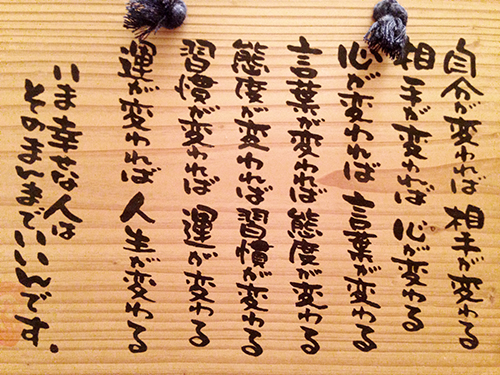 自分が変われば 相手が変わる
相手が変われば 心が変わる
心が変われば 言葉が変わる
言葉が変われば 態度が変わる
態度が変われば 習慣が変わる
習慣が変われば 運が変わる
運が変われば 人生が変わる
いま幸せな人は
そのまんまでいいんです。